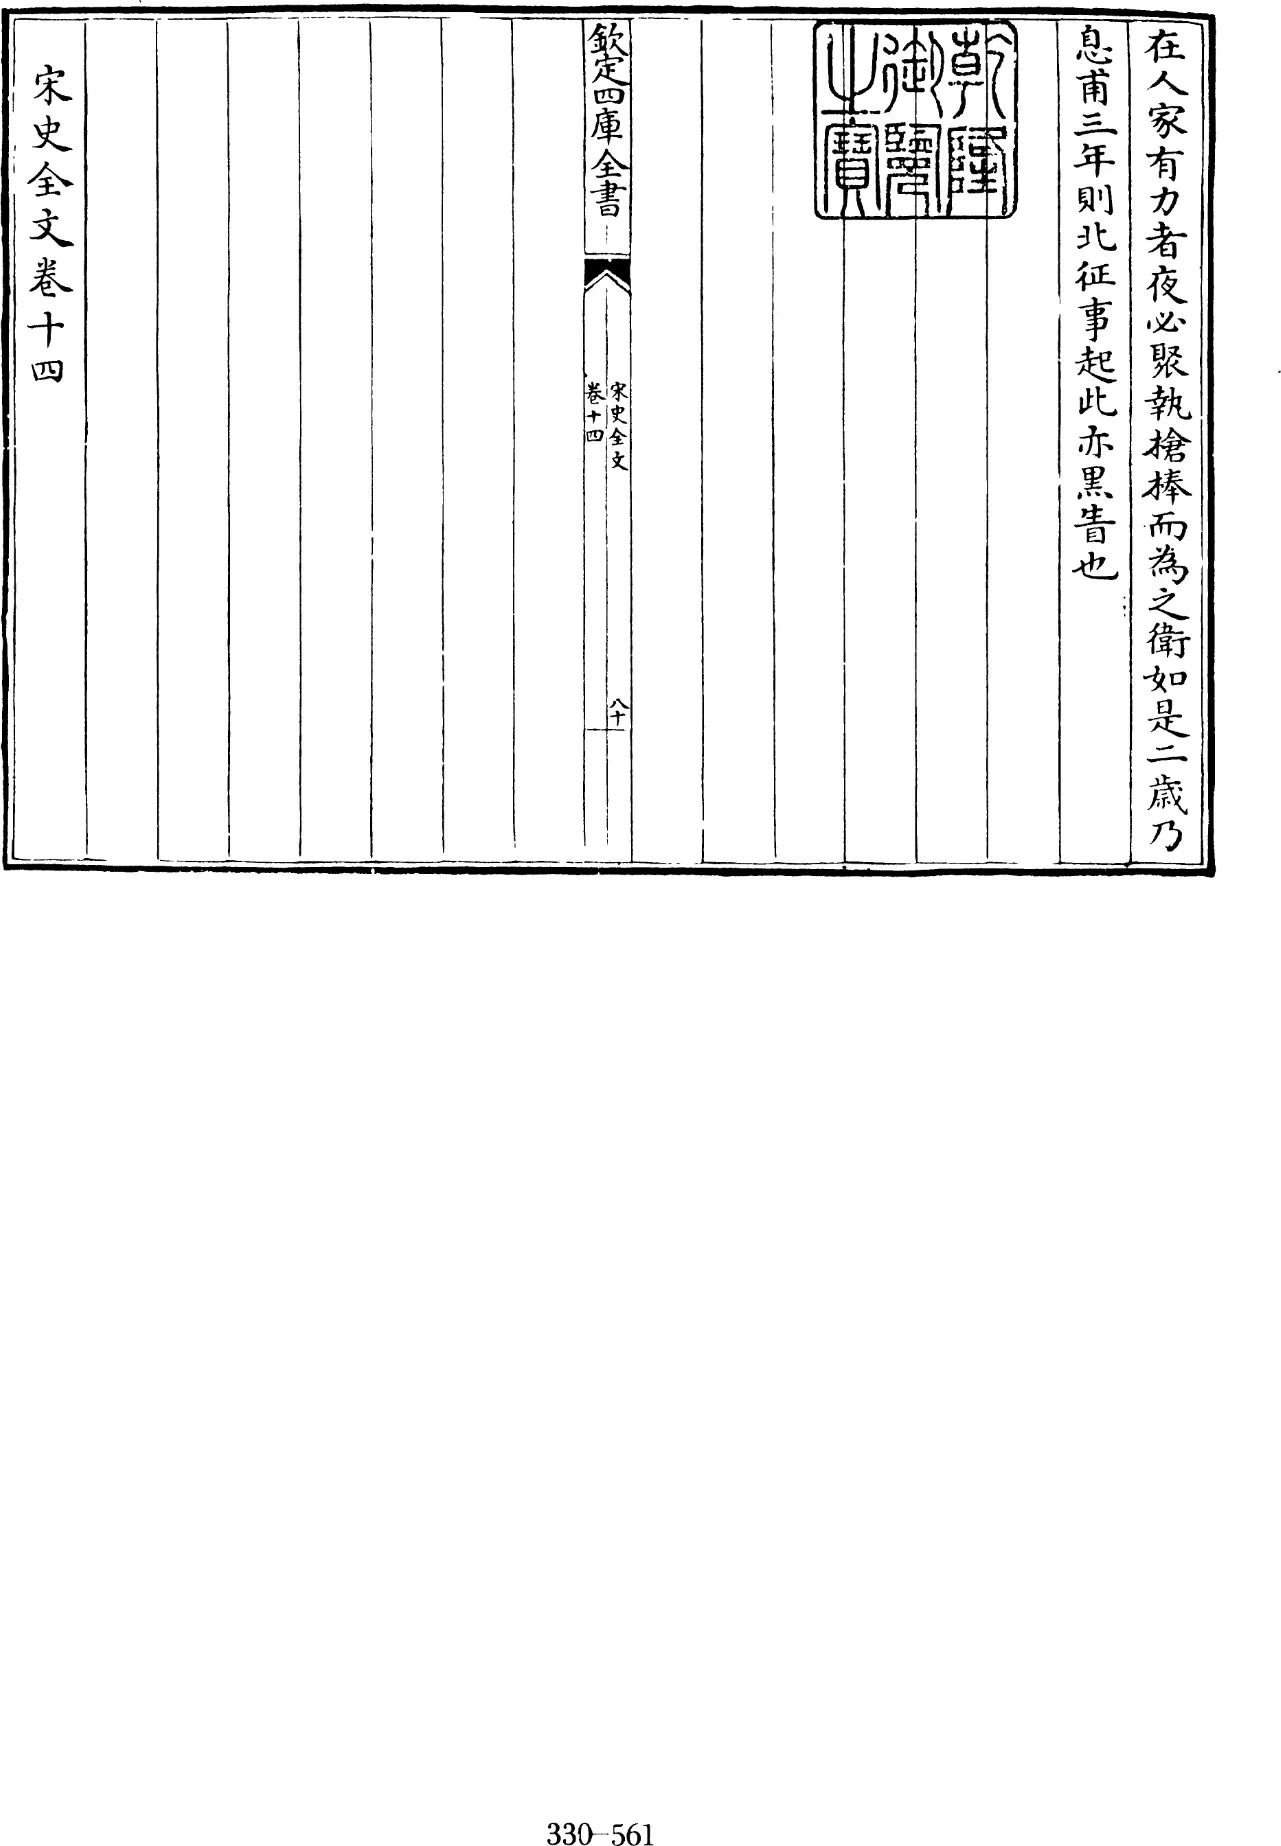 在人家有力者夜必聚執槍棒而為之衛如是二歲乃
息甫三年則北征事起此亦黒眚也
乾隆
御覽
之寶
欽定四庫全書
宋史全文
卷十四
八十
宋史全文卷十四
330-561